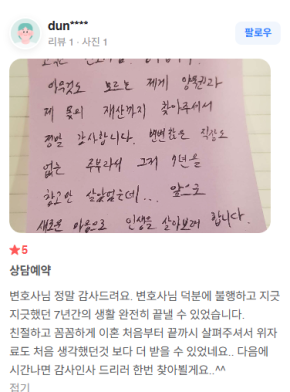 dun****
리뷰 1 · 사진 1
팔로우
아무것도 모르는 제게 양육권과
제 몫의 재산까지 찾아주셔서
정말 감사합니다. 변변찮은 직장도
없는 주부라서 그저 7년을
참고만 살았었는데... 앞으로
새로운 마음으로 인생을 살아보려 합니다.
5
상담예약
변호사님 정말 감사드려요. 변호사님 덕분에 불행하고 지긋
지긋했던 7년간의 생활 완전히 끝낼 수 있었습니다.
친절하고 꼼꼼하게 이혼 처음부터 끝까지 살펴주셔서 위자
료도 처음 생각했던것 보다 더 받을 수 있었네요.. 다음에
시간나면 감사인사 드리러 한번 찾아뵐게요..^^
접기